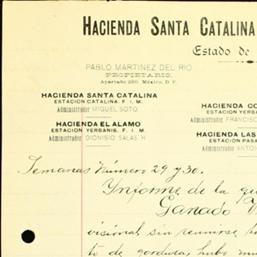 HACIENDA SANTA CATALINA
Estado de
PABLO MARTINEZ DEL RIO
PROPIETARIO.
Apartado 250. México, D. F.
HACIENDA SANTA CATALINA
ESTACION CATALINA. F. I. M.
Administrador MIGUEL SOTO.
HACIENDA EL ALAMO
ESTACION YERBANIS. F. I. M.
Administrador DIONISIO SALAS H
HACIENDA CO
ESTACION YERBAN
Administrador FRANCISC
HACIENDA LAS
ESTACION PASA
Administrador ANTON
Semanas Número 29 y 30.
Informe de la que
Ganado V
visional sin reunirse
to de gordura, hubo mu